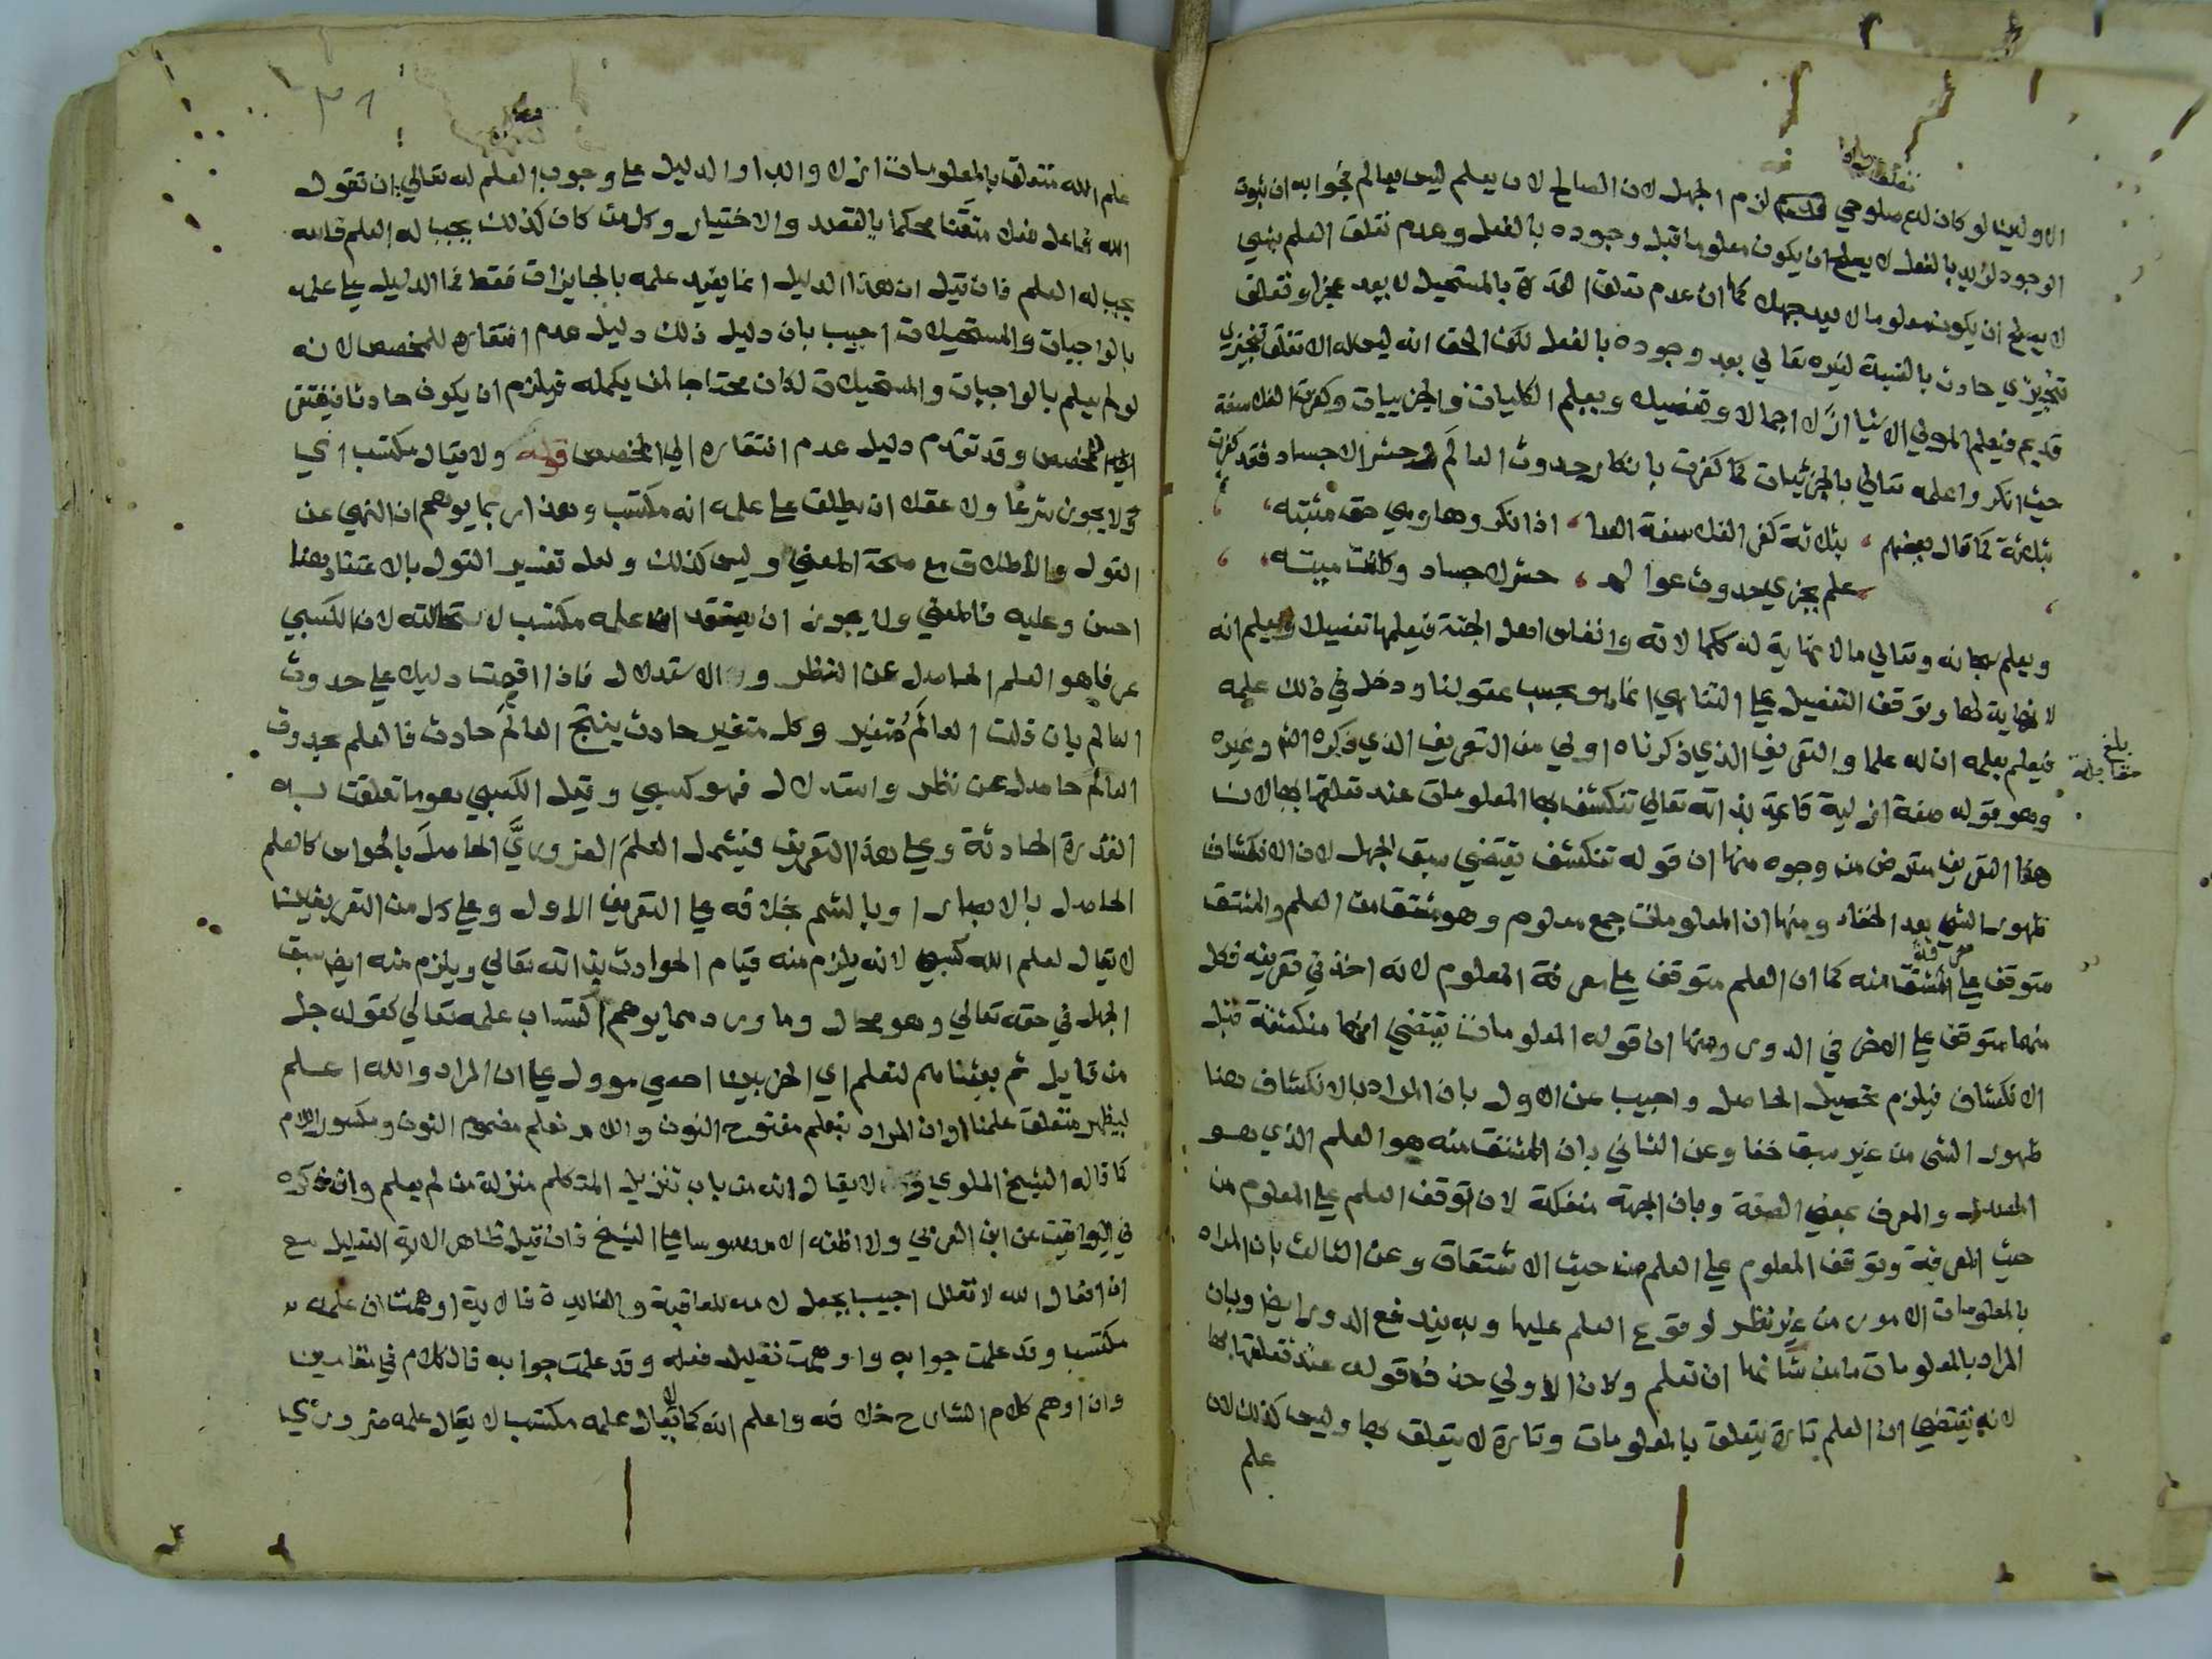 الاوليين لو كان له صلوحي لزم الجهل لان الصالح لان يعلم ليس بعالم فجوابه ان ثبوت
الوجود لزيد بالفعل لا يصلح ان يكون معلوما قبل وجوده بالفعل وعدم تعلق العلم بشي
لا يصلح ان يكون معلوما لا يعد جهلا كما ان عدم تعلق القدرة بالمستحيل لا يعد عجزا وتعلق
تنجيزي حادث بالنسبة لغيره تعالي بعد وجوده بالفعل لكن الحق انه ليس له الا تعلق تنجيزي
قديم فيعلم المولي الاشيا ازلا اجمالا وتفصيلا ويعلم الكليات والجزييات وكفرت الفلاسفة
حيث انكروا علمه تعالي بالجزئيات كما كفرت بانكار حدوث العالم وحشر الاجساد فقد كفرت
بثلاثة كما قال بعضهم ، بثلاثة كفر الفلاسفة العدا ، اذ انكروها وهي حق مثبته ،
علم بجزي حدوث عوالم ، حشر لاجساد وكانت ميته ،
ويعلم سبحانه وتعالي ما لا نهاية له ككمالاته وانفاس اهل الجنة فيعلمها تفصيلا ويعلم انه
لا نهاية لها وتوقف التفصيل علي التناهي انما هو بحسب عقولنا ودخل في ذلك علمه
فيعلم بعلمه ان له علما والتعريف الذي ذكرناه اولي من التعريف الذي ذكره الش وغيره
وهو قوله صفة ازلية قائمة بذاته تعالي تنكشف بها المعلومات عند تعلقها بها لان
هذا التعريف معترض من وجوه منها ان قوله تنكشف يقتضي سبق الجهل لان الانكشاف
ظهور الشي بعد الخفاء ومنها ان المعلومات جمع معلوم وهو مشتق من العلم والمشتق
متوقف علي معرفة المشتق منه كما ان العلم متوقف علي معرفة المعلوم لانه اخذ في تعريفه فكل
منهما متوقف علي الاخر في الدور ومنها ان قوله المعلومات يقتضي انها منكشفة قبل
الانكشاف فيلزم تحصيل الحاصل واجيب عن الاول بان المراد بالانكشاف هنا
ظهور الشي من غير سبق خفا وعن الثاني بان المشتق منه هو العلم الذي هو
المصدر والمعرف بمعني الصفة وبان الجهة منفكة لان توقف العلم علي المعلوم من
حيث المعرفة وتوقف المعلوم علي العلم من حيث الاشتقاق وعن الثالث بان المراد
بالمعلومات الامور من غير نظر لوقوع العلم عليها وبه يندفع الدور ايضا وبان
المراد بالمعلومات ما من شانها ان تعلم وكان الاولي حذف قوله عند تعلقها بها
لانه يقتضي ان العلم تارة يتعلق بالمعلومات وتارة لا يتعلق بها وليس كذلك لان
علم
بلغ
مقابلة
٣١
علم الله متعلق بالمعلومات ازلا وابدا والدليل علي وجوب العلم له تعالي ان تقول
الله فاعل فعلا متقنا محكما بالقصد والاختيار وكل من كان كذلك يجب له العلم فالله
يجب له العلم فان قيل ان هذا الدليل انما يفيد علمه بالجايزات فقط فما الدليل علي علمه
بالواجبات والمستحيلات اجيب بان دليل ذلك دليل عدم افتقاره للمخصص لانه
لو لم يعلم بالواجبات والمستحيلات لكان محتاجا لمن يكمله فيلزم ان يكون حادثا فيفتقر
الي المخصص وقد تقدم دليل عدم افتقاره الي المخصص قوله ولا يقال مكتسب اي
ولا يجوز شرعا ولا عقلا ان يطلق علي علمه انه مكتسب وهذا ربما يوهم ان النهي عن
القول والاطلاق مع صحة المعني وليس كذلك ولعل تفسير القول بالاعتقاد هنا
احسن وعليه فالمعني ولا يجوز ان يعتقد ان علمه مكتسب لاستحالته لان الكسبي
عرفا هو العلم الحاصل عن النظر والاستدلال فاذا اقمت دليلا علي حدوث
العالم بان قلت العالم متغير وكل متغير حادث ينتج العالم حادث فالعلم بحدوث
العالم حاصل عن نظر واستدلال فهو كسبي وقيل الكسبي هو ما تعلقت به
القدرة الحادثة وعلي هذا التعريف فيشمل العلم الضروري الحاصل بالحواس كالعلم
الحاصل بالابصار او بالشم بخلافه علي التعريف الاول وعلي كل من التعريفين
لا يقال لعلم الله كسبي لانه يلزم منه قيام الحوادث بذاته تعالي ويلزم منه ايضا سبق
الجهل في حقه تعالي وهو محال وما ورد مما يوهم اكتساب علمه تعالي كقوله جل
من قايل ثم بعثناهم لنعلم اي الحزبين احصي موول علي ان المراد والله اعلم
ليظهر متعلق علمنا او ان المراد بنعلم مفتوح النون واللام نعلم مضموم النون ومكسور اللام
كما قاله الشيخ الملوي لا يقال انه من باب تنزيل المتكلم منزلة من لم يعلم وان ذكره
في اليواقيت عن ابن العربي ولا اظنه الا مدسوسا علي الشيخ فان قيل ظاهر الاية التعليل مع
ان افعال الله لا تعلل اجيب بجعل لامه للعاقبة والفايدة فالاية اوهمت ان علمه
مكتسبا وقد علمت جوابه واوهمت تعليل فعله وقد علمت جوابه فالكلام في مقامين
وان اوهم كلام الشارح خلافه واعلم انه كما لا يقال علمه مكتسب لا يقال علمه ضروري